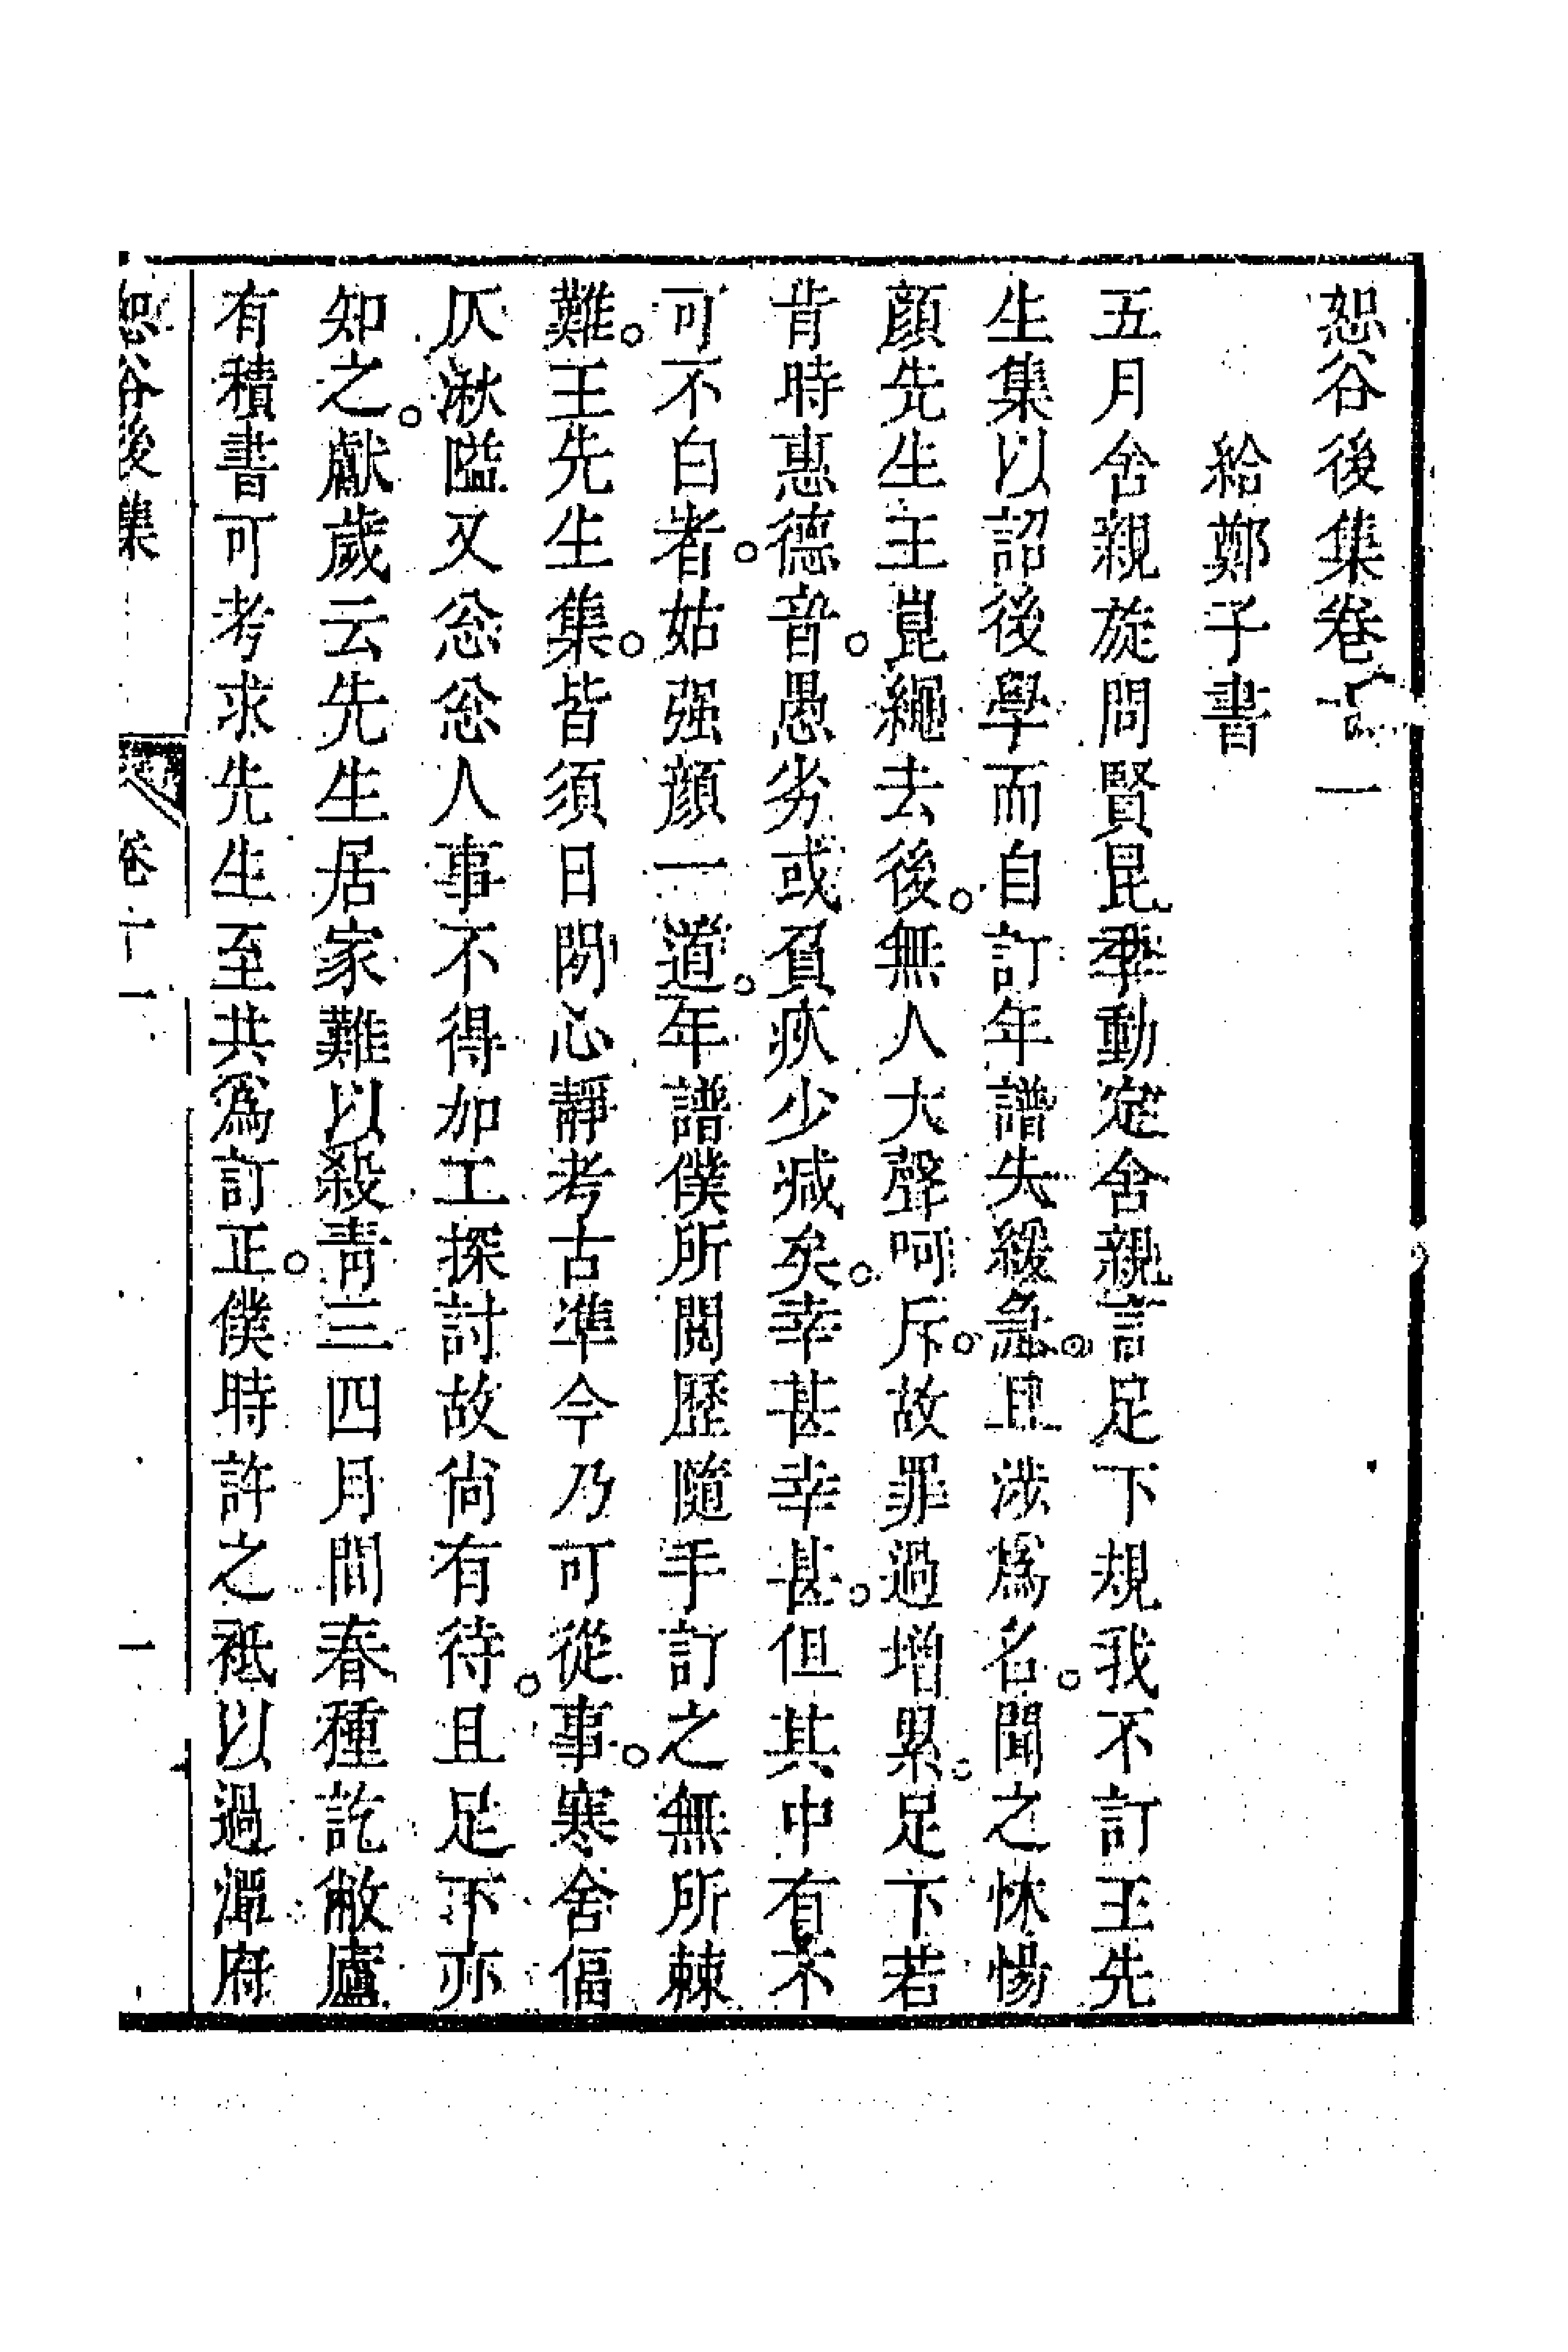 恕谷後集卷十一
給鄭子書
五月舍親旋問賢昆季動定舍親言足下規我不訂王先
生集以詔後學而自訂年譜失緩急且涉爲名聞之怵惕
顏先生王崑繩去後無人大聲呵斥故罪過增累足下若
肯時惠德音愚劣或負疚少减矣幸甚幸甚但其中有不
可不白者姑强顏一道年譜僕所閱歷隨手訂之無所棘
難王先生集皆須日閒心靜考古準今乃可從事寒舍偪
仄湫隘又忩忩人事不得加工探討故尚有待且足下亦
知之獻歲云先生居家難以殺靑三四月間春種訖敝廬
有積書可考求先生至共爲訂正僕時許之祗以過潭府
恕谷後集 卷十一 一